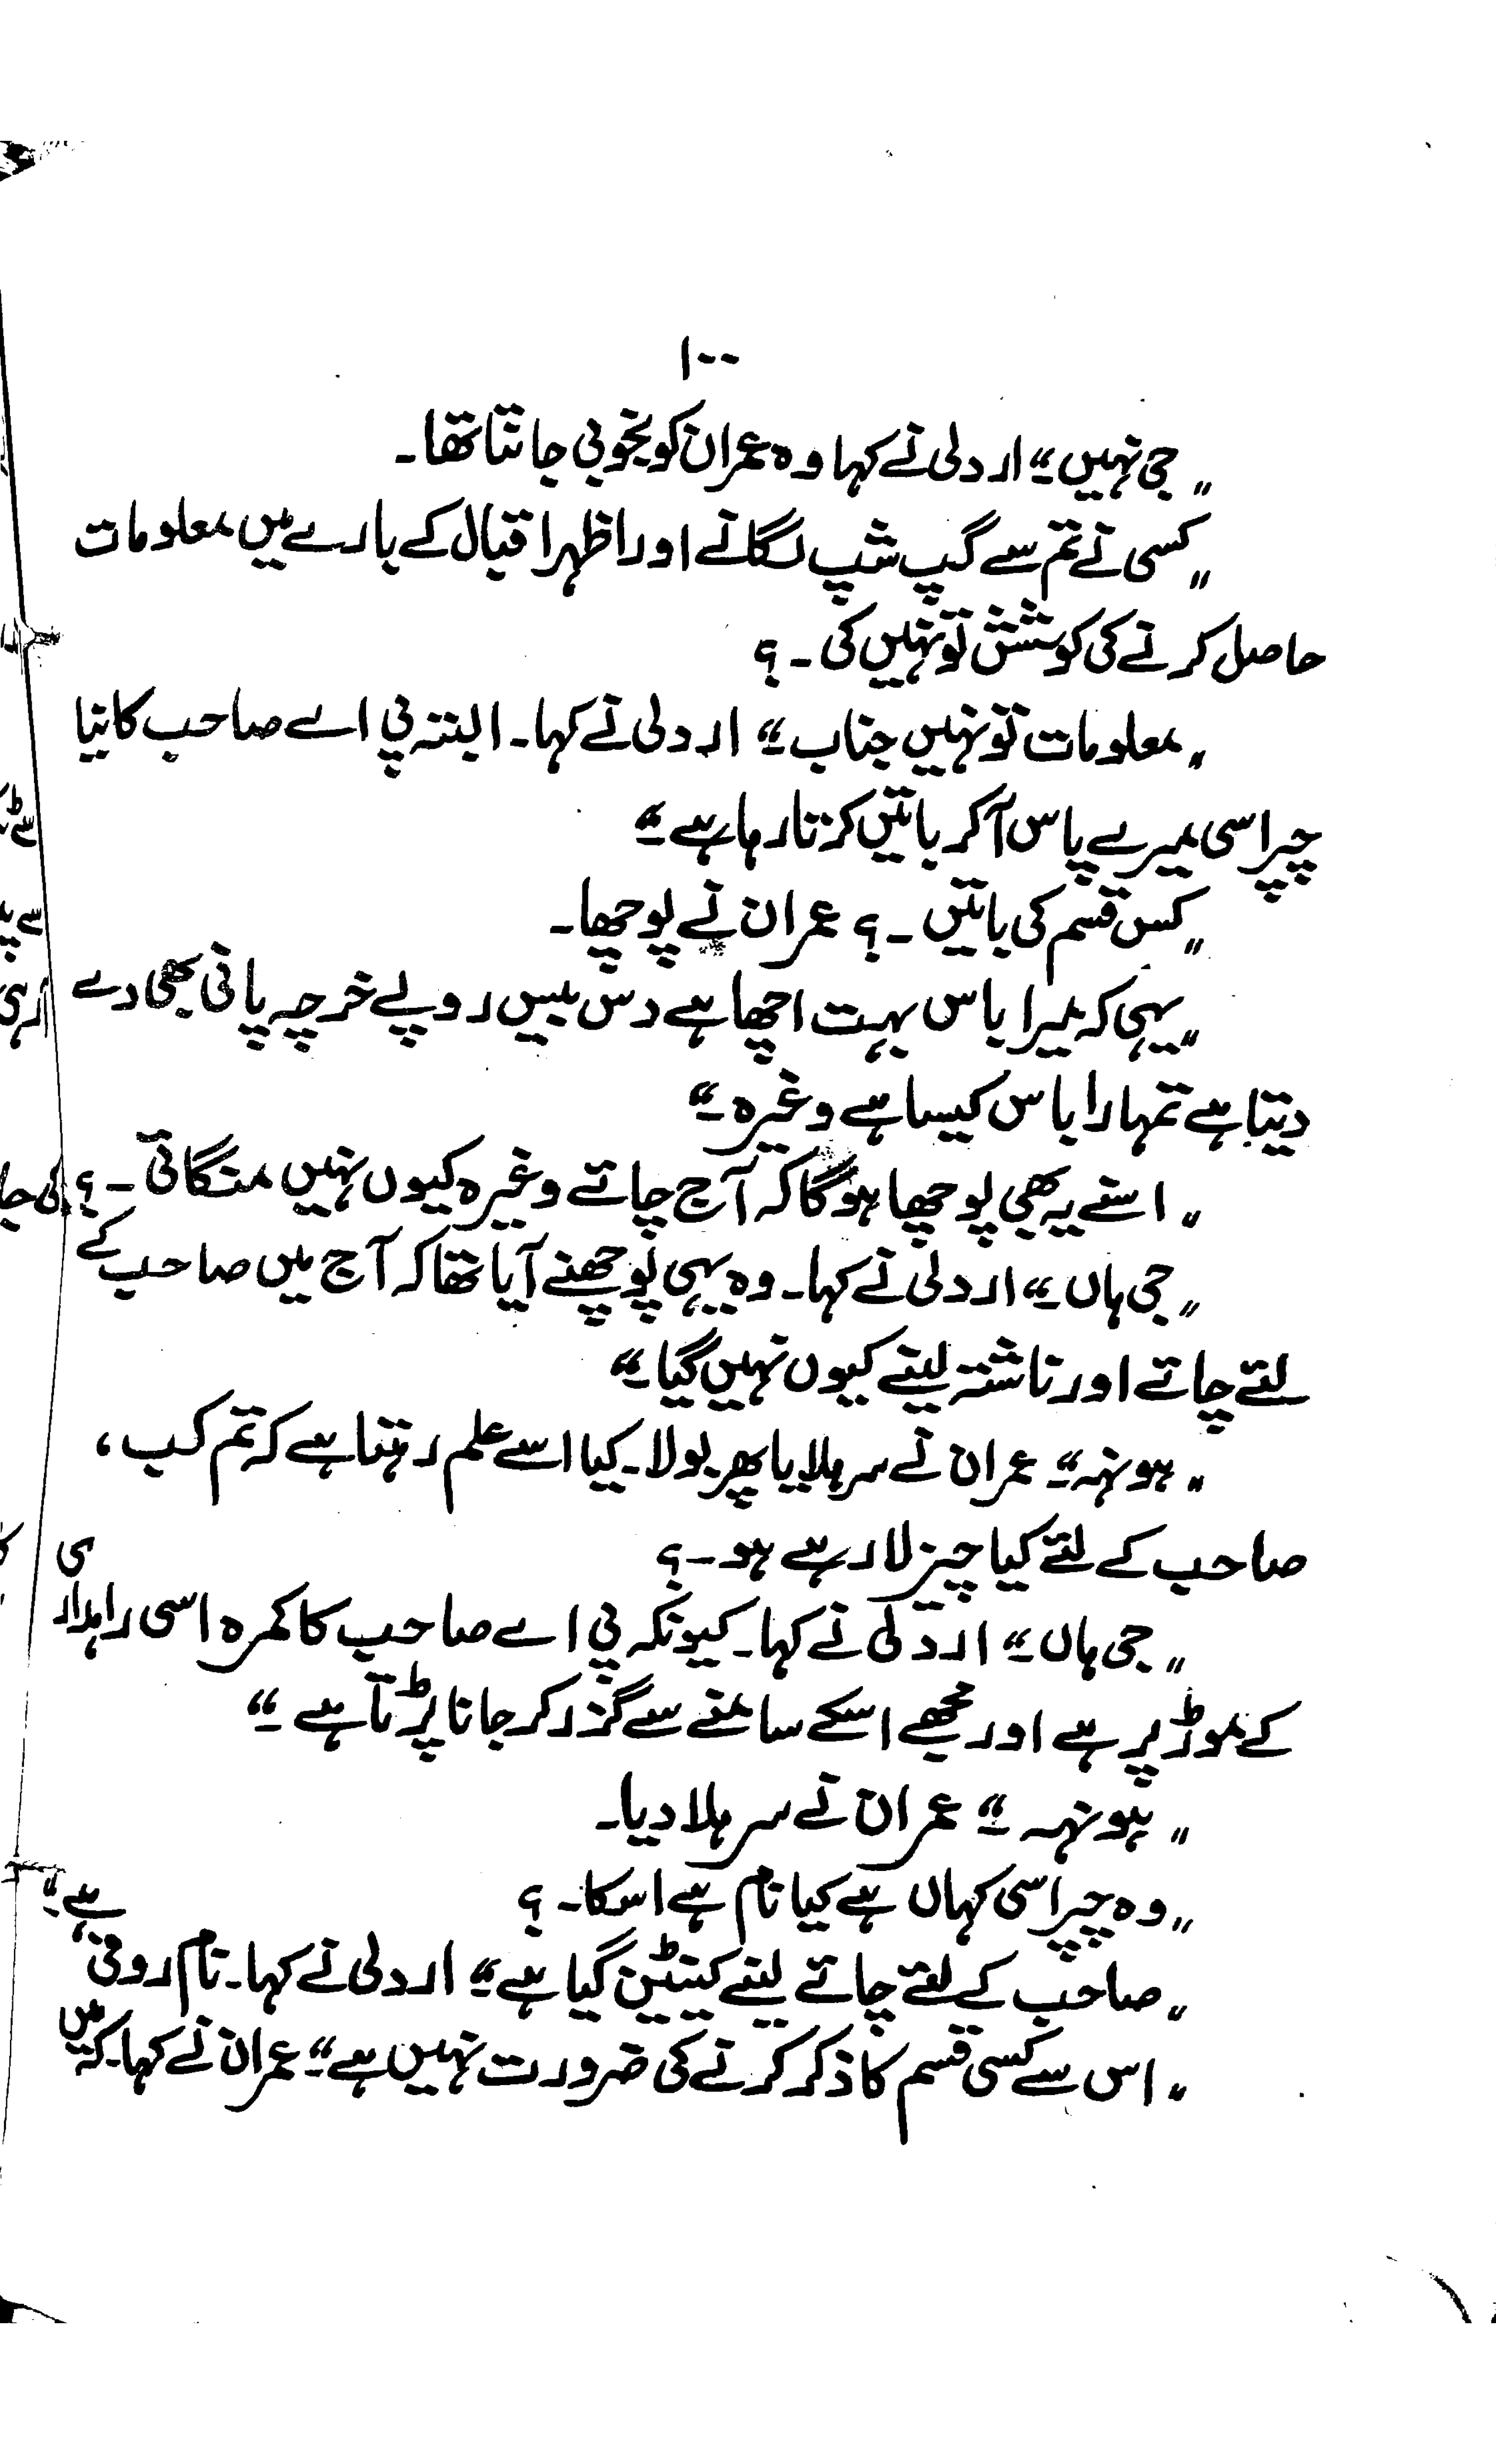 ۱۰۰
"جی نہیں"۔ اردلی نے کہا وہ عمران کو بخوبی جانتا تھا۔
"کسی نے تم سے گپ شپ لگانے اور اظہر اقبال کے بارے میں معلومات
حاصل کرنے کی کوشش تو نہیں کی۔؟
"معلومات تو نہیں جناب"۔ اردلی نے کہا۔ البتہ پی اے صاحب کا نیا
چپراسی میرے پاس آ کر باتیں کرتا رہا ہے"۔
"کس قسم کی باتیں۔؟ عمران نے پوچھا۔
"یہی کہ میرا باس بہت اچھا ہے دس بیس روپے خرچہ پانی بھی دے
دیتا ہے تمہارا باس کیسا ہے وغیرہ"۔
"اسنے یہ بھی پوچھا ہوگا کہ آج چائے وغیرہ کیوں نہیں منگائی۔؟
"جی ہاں"۔ اردلی نے کہا۔ وہ یہی پوچھنے آیا تھا کہ آج میں صاحب کے
لئے چائے اور ناشتہ لینے کیوں نہیں گیا"۔
"ہونہہ"۔ عمران نے سر ہلایا پھر بولا۔ کیا اسے علم رہتا ہے کہ تم کب،
صاحب کے لئے کیا چیز لا رہے ہو۔؟
"جی ہاں"۔ اردلی نے کہا۔ کیونکہ پی اے صاحب کا کمرہ اسی راہداری
کے موڑ پر ہے اور مجھے اسکے سامنے سے گزر کر جانا پڑتا ہے"۔
"ہونہہ"۔ عمران نے سر ہلا دیا۔
"وہ چپراسی کہاں ہے کیا نام ہے اسکا۔؟
"صاحب کے لئے چائے لینے کینٹین گیا ہے"۔ اردلی نے کہا۔ نام رونی ہے"۔
"اس سے کسی قسم کا ذکر کرنے کی ضرورت نہیں ہے"۔ عمران نے کہا۔ کہ میں